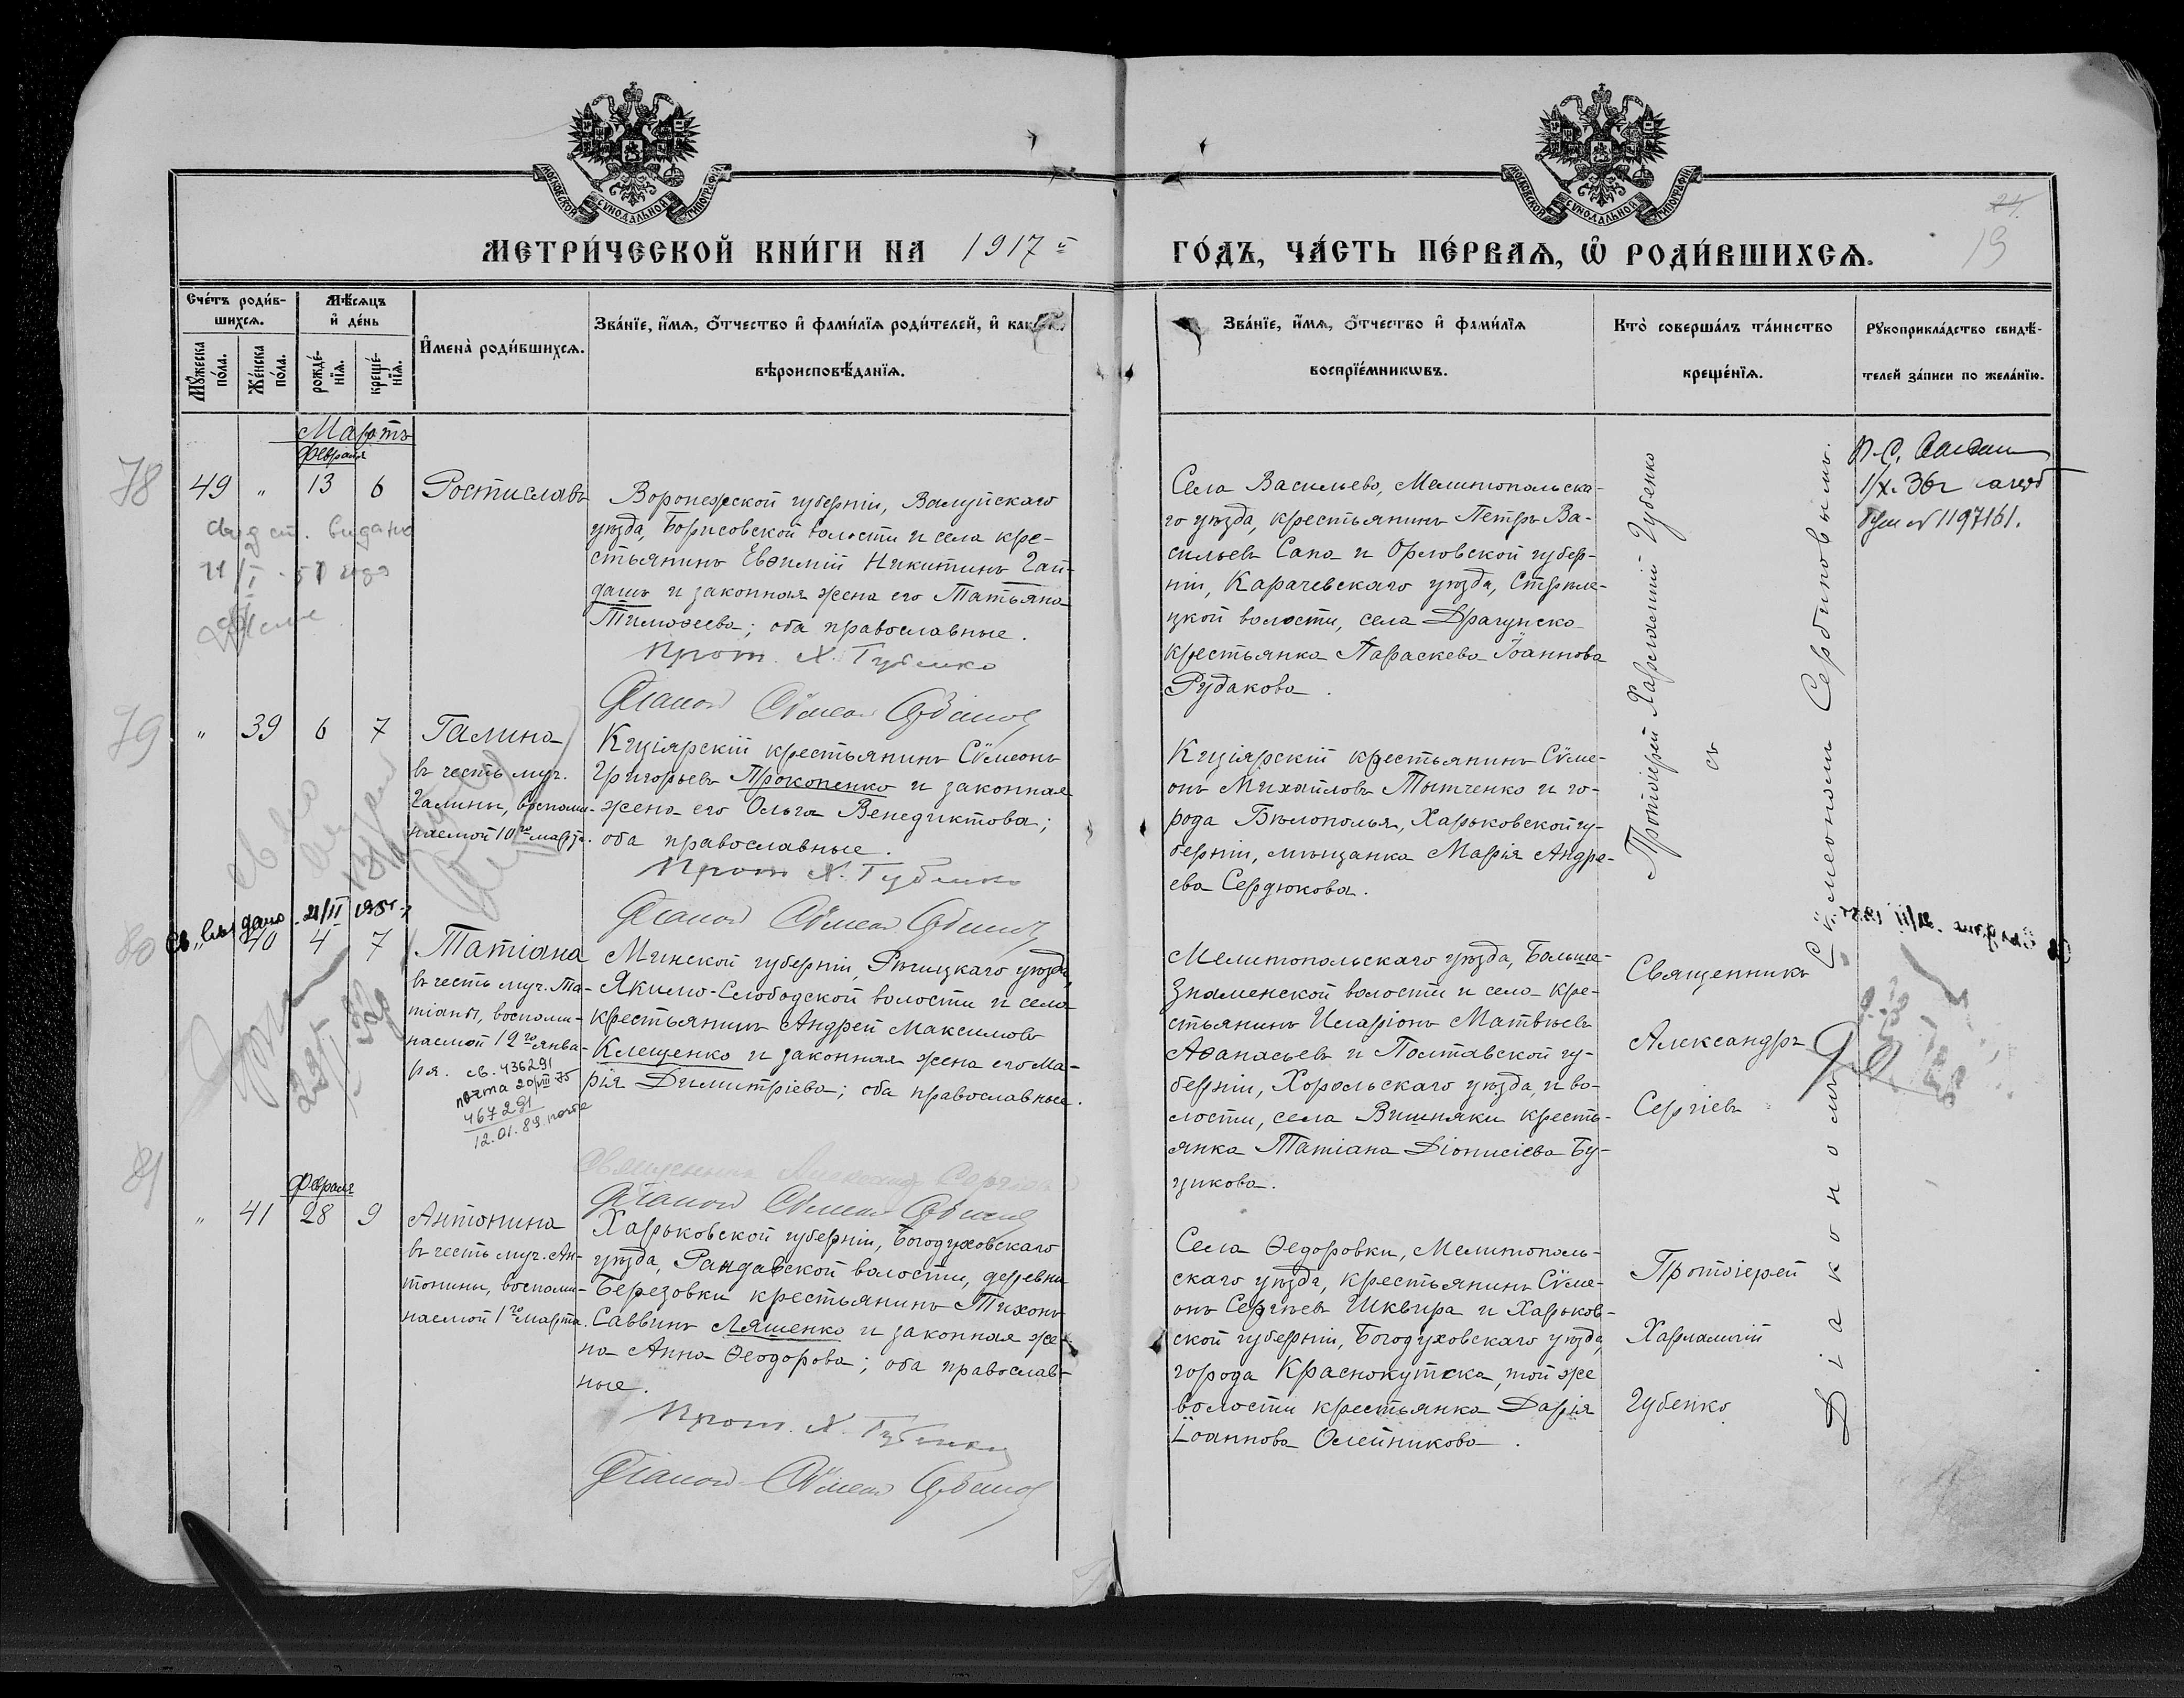 МОСКОВСКОЙ СУНОДАЛЬНОЙ ТИПОГРАФІИ
МОСКОВСКОЙ СУНОДАЛЬНОЙ ТИПОГРАФІИ
МЕТРИ́ЧЕСКОЙ КНИ́ГИ НА 1917 й
ГО́ДЪ, ЧА́СТЬ ПЕ́РВАѦ, Ѡ҆ РОДИ́ВШИХСѦ.
24.
19
Сче́тъ роди́в-
шихсѧ.
Мѣ́сѧцъ
и҆ де́нь
Мꙋ́жеска
по́ла.
Же́нска
по́ла.
рожде́-
нїѧ.
креще́-
нїѧ.
И҆мена̀ роди́вшихсѧ.
Зва́нїе, и҆́мѧ, ѻ҆́тчество и҆ фами́лїѧ роди́телей, и҆
вѣроисповѣ́данїѧ.
Зва́нїе, и҆́мѧ, ѻ҆́тчество и҆ фами́лїѧ
воспрїе́мникѡвъ.
Кто̀ соверша́лъ та́инство
креще́нїѧ.
Рꙋкоприкла́дство свидѣ́-
телей за́писи по жела́нїю.
Мартъ
Февраля
78
49 " 13 6
Ростиславъ
Воронежской губерніи, Валуйскаго
уѣзда, Борисовской волости и села кре-
стьянинъ Евѳимій Никитинъ Гай-
дашъ и законная жена его Татьяна
Тимоѳеева; оба православные.
Прот. Х. Губенко
Діаконъ Сѵмеонъ Сербиновъ
Села Васильево, Мелитопольска-
го уѣзда, крестьянинъ Петръ Ва-
сильевъ Сапа и Орловской губер-
ніи, Карачевскаго уѣзда, Стрѣле-
цкой волости, села Драгунска
крестьянка Параскева Іоаннова
Рудакова.
Протоіерей Харлампій Губенко
съ
Діакономъ Сѵмеономъ Сербиновымъ.
1/X. 36г
1197161.
свидет. видано
21/I - 51 года
79
" 39 6 7
Галина
въ честь муч.
Галины, воспоми-
наемой 10го марта.
Кизіярскій крестьянинъ Сѵмеонъ
Григорьевъ Прокопенко и законная
жена его Ольга Венедиктова;
оба православные.
Прот. Х. Губенко
Діаконъ Сѵмеонъ Сербиновъ
Кизіярскій крестьянинъ Сѵме-
онъ Михайловъ Тытченко и го-
рода Бѣлополья, Харьковской гу-
берніи, мѣщанка Марія Андре-
ева Сердюкова.
Св. выдано 21/II 195
80
" 40 4 7
Татіана
въ честь муч. Та-
тіаны, воспоми-
наемой 12го янва-
ря.
св. 436291
почта 20/VIII 75
467291
12.01.89. почта
Минской губерніи, Рѣчицкаго уѣзда,
Якимо-Слободской волости и села
крестьянинъ Андрей Максимовъ
Клещенко и законная жена его Ма-
рія Димитріева; оба православные.
Священникъ Александръ Сергіевъ
Діаконъ Сѵмеонъ Сербиновъ
Мелитопольскаго уѣзда, Больше-
Знаменской волости и села кре-
стьянинъ Иларіонъ Матвѣевъ
Аѳанасьевъ и Полтавской гу-
берніи, Хорольскаго уѣзда, и во-
лости, села Вишняки кресть-
янка Татіана Діонисіева Бу-
цикова.
Священникъ
Александръ
Сергіевъ
81
Февраля
" 41 28 9
Антонина
въ честь муч. Ан-
тонины, воспоми-
наемой 1го марта.
Харьковской губерніи, Богодуховскаго
уѣзда, Рандавской волости, деревни
Березовки крестьянинъ Тихонъ
Саввинъ Ляшенко и законная же-
на Анна Ѳеодорова; оба православ-
ные.
Прот. Х. Губенко
Діаконъ Сѵмеонъ Сербиновъ
Села Ѳедоровки, Мелитополь-
скаго уѣзда, крестьянинъ Сѵме-
онъ Сергѣевъ Шквира и Харьков-
ской губерніи, Богодуховскаго уѣзда,
города Краснокутска, той же
волости крестьянка Дарія
Іоаннова Олейникова.
Протоіерей
Харлампій
Губенко